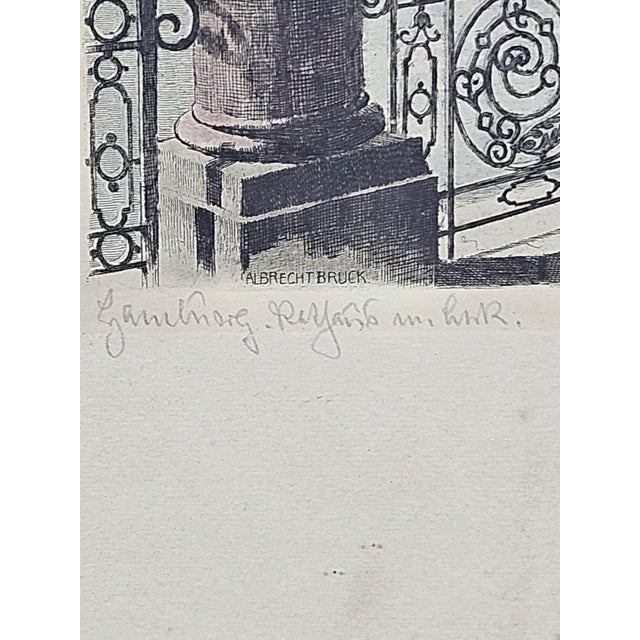 ALBRECHT BRUCK
Hamburg. Rathaus m.